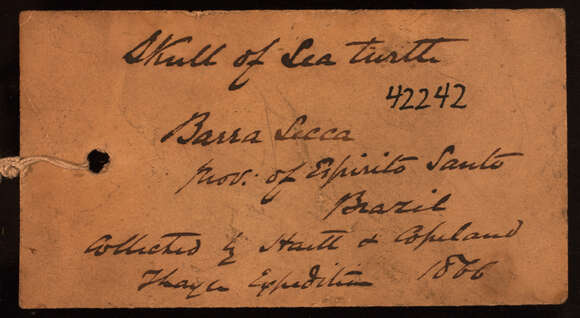 Skull of Sea turtle
42242
Barra Secca
Prov: of Espirito Santo
Brazil
Collected by Hartt & Copeland
Thayer Expedition 1866